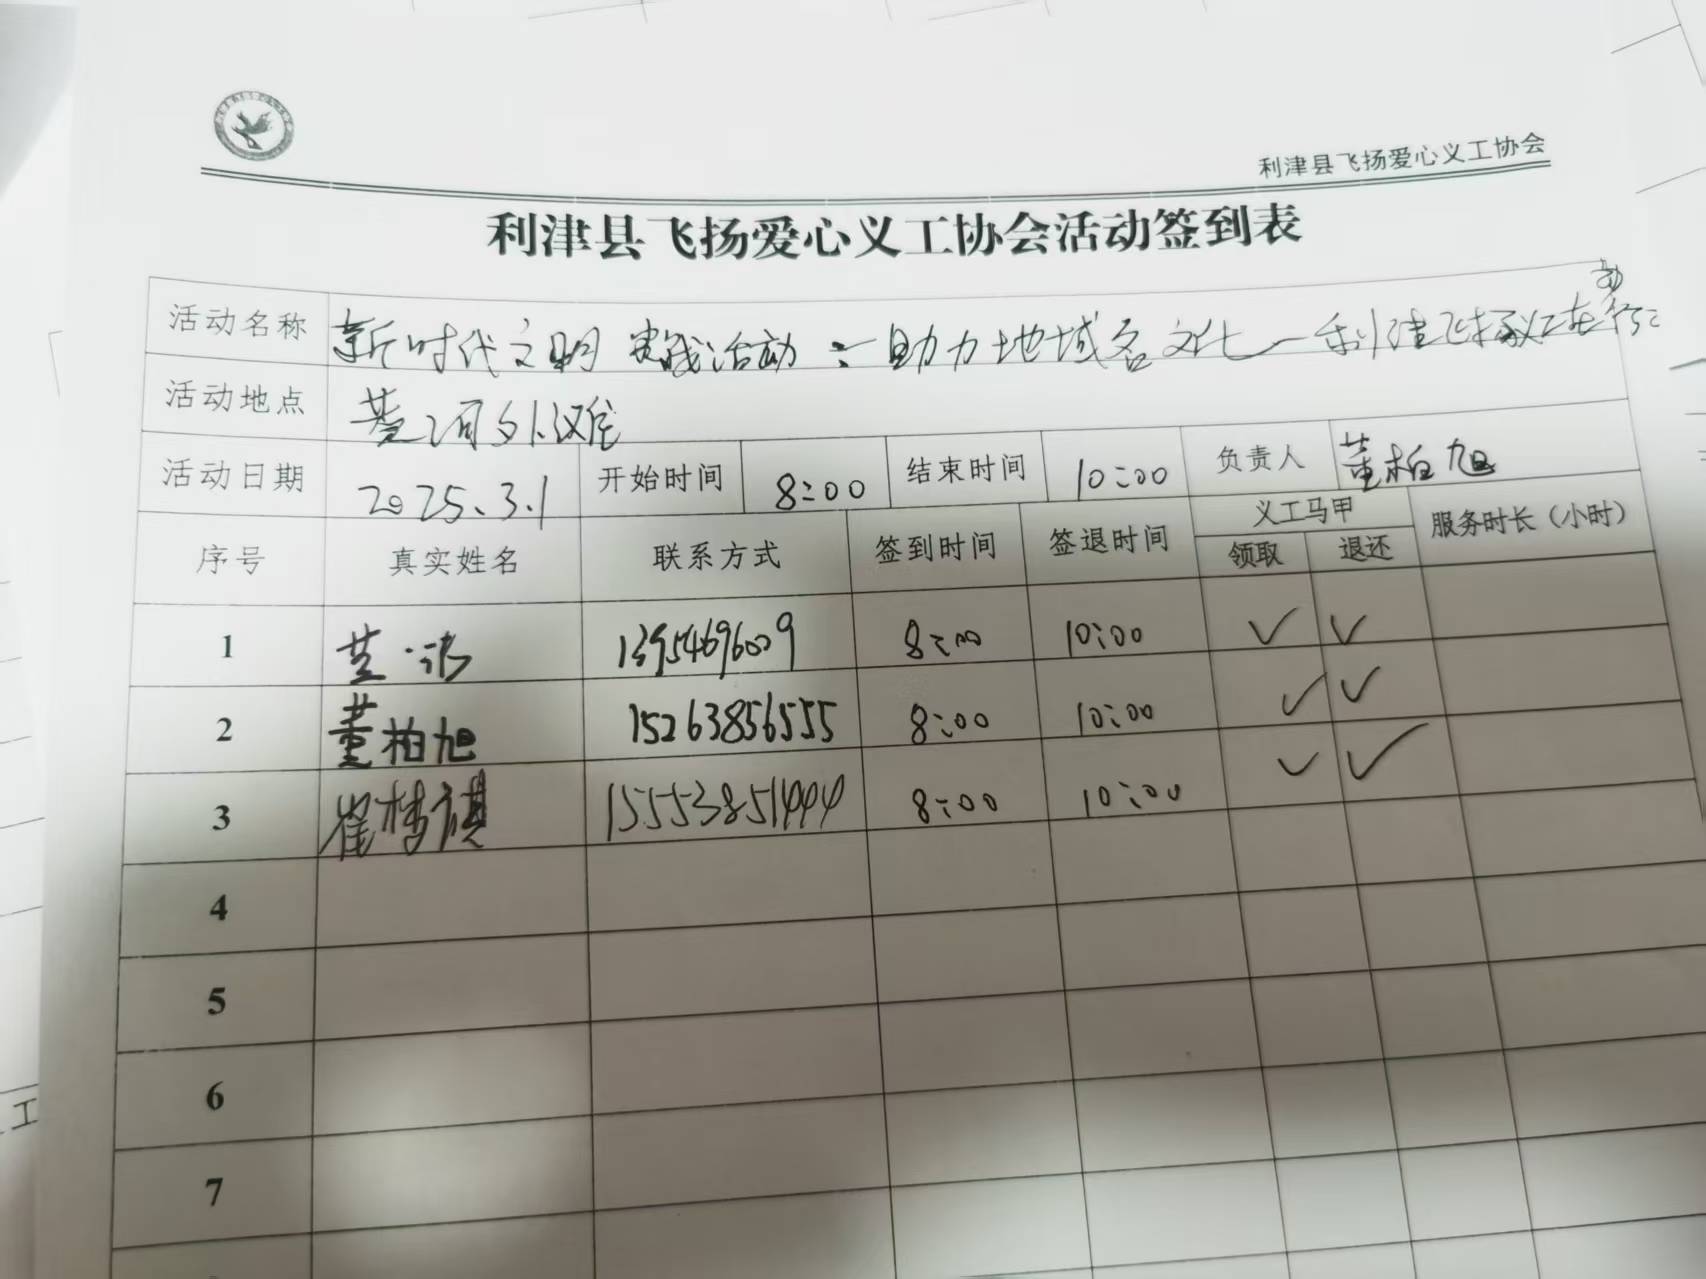 利津县飞扬爱心义工协会
利津县飞扬爱心义工协会活动签到表
活动名称 新时代文明实践活动：助力地域名文化—利津飞扬义工在行动
活动地点 黄河外滩
活动日期 2025.3.1 开始时间 8:00 结束时间 10:00 负责人 董柏旭
序号 真实姓名 联系方式 签到时间 签退时间 义工马甲 服务时长（小时）
领取 退还
1 13954696009 8:00 10:00 ✓ ✓
2 董柏旭 15263856555 8:00 10:00 ✓ ✓
3 崔梦祺 15553851444 8:00 10:00 ✓ ✓
4
5
6
7
工